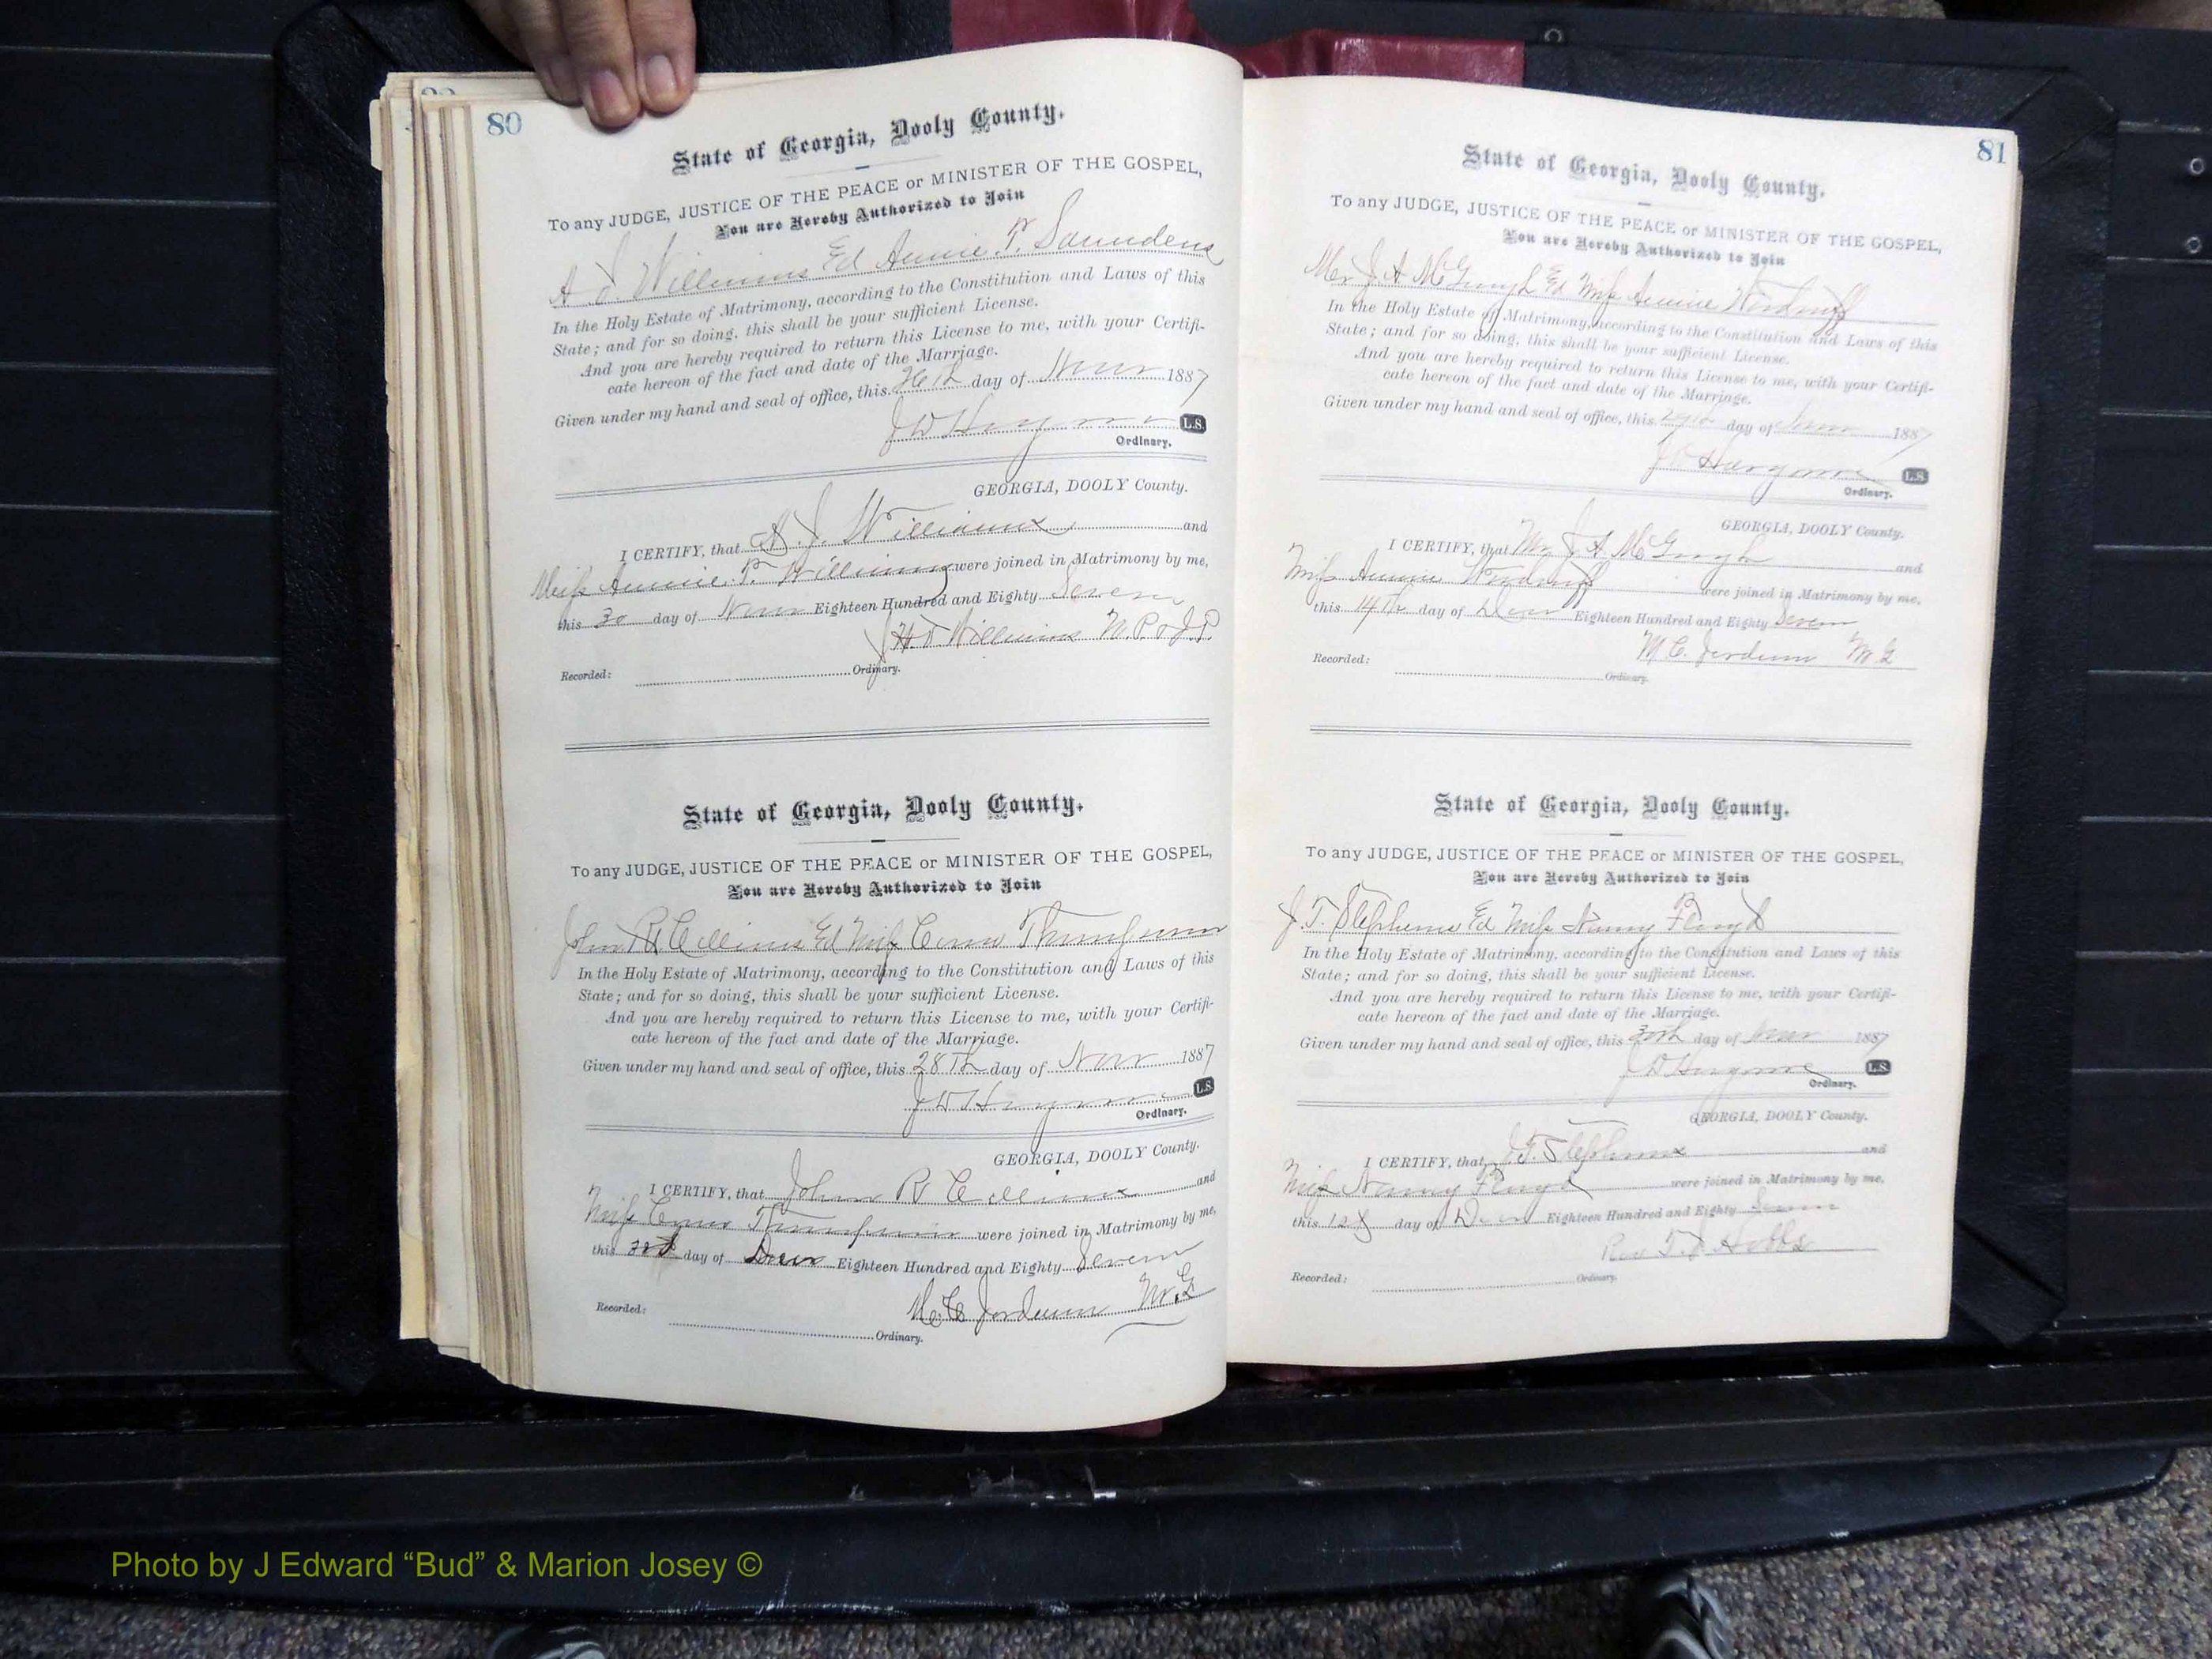 80
State of Georgia, Dooly County.
To any JUDGE, JUSTICE OF THE PEACE or MINISTER OF THE GOSPEL,
You are Hereby Authorized to Join
A J Williams Ed Annie P. Saunders
In the Holy Estate of Matrimony, according to the Constitution and Laws of this
State; and for so doing, this shall be your sufficient License.
And you are hereby required to return this License to me, with your Certifi-
cate hereon of the fact and date of the Marriage.
Given under my hand and seal of office, this 26th day of Novr 1887
J D Hargrove L.S.
Ordinary.
GEORGIA, DOOLY County.
I CERTIFY, that A. J. Williams and
Miss Annie P. Williams were joined in Matrimony by me,
this 30 day of Novr Eighteen Hundred and Eighty Seven
Williams N.P. & J.P.
Recorded: Ordinary.
State of Georgia, Dooly County.
To any JUDGE, JUSTICE OF THE PEACE or MINISTER OF THE GOSPEL,
You are Hereby Authorized to Join
John R Collins Ed Miss Thompson
In the Holy Estate of Matrimony, according to the Constitution and Laws of this
State; and for so doing, this shall be your sufficient License.
And you are hereby required to return this License to me, with your Certifi-
cate hereon of the fact and date of the Marriage.
Given under my hand and seal of office, this 28th day of Novr 1887
J D Hargrove L.S.
Ordinary.
GEORGIA, DOOLY County.
I CERTIFY, that John R Collins and
Miss Thompson were joined in Matrimony by me,
this day of Decr Eighteen Hundred and Eighty Seven
M. C. Jordan M.G
Recorded: Ordinary.
81
State of Georgia, Dooly County.
To any JUDGE, JUSTICE OF THE PEACE or MINISTER OF THE GOSPEL,
You are Hereby Authorized to Join
Mr J. A McGough Ed Miss Annie Woodruff
In the Holy Estate of Matrimony, according to the Constitution and Laws of this
State; and for so doing, this shall be your sufficient License.
And you are hereby required to return this License to me, with your Certifi-
cate hereon of the fact and date of the Marriage.
Given under my hand and seal of office, this 29th day of Novr 1887
J D Hargrove L.S.
Ordinary.
GEORGIA, DOOLY County.
I CERTIFY, that Mr J A McGough and
Miss Annie Woodruff were joined in Matrimony by me,
this 14th day of Decr Eighteen Hundred and Eighty Seven
M C. Jordan M G
Recorded: Ordinary.
State of Georgia, Dooly County.
To any JUDGE, JUSTICE OF THE PEACE or MINISTER OF THE GOSPEL,
You are Hereby Authorized to Join
J. T. Stephens Ed Miss Nanny Floyd
In the Holy Estate of Matrimony, according to the Constitution and Laws of this
State; and for so doing, this shall be your sufficient License.
And you are hereby required to return this License to me, with your Certifi-
cate hereon of the fact and date of the Marriage.
Given under my hand and seal of office, this 30th day of Novr 1887
J D Hargrove L.S.
Ordinary.
GEORGIA, DOOLY County.
I CERTIFY, that J. T. Stephens and
Miss Nanny Floyd were joined in Matrimony by me,
this 1st day of Decr Eighteen Hundred and Eighty Seven
Rev T. J Hobbs
Recorded: Ordinary.
Photo by J Edward “Bud” & Marion Josey ©